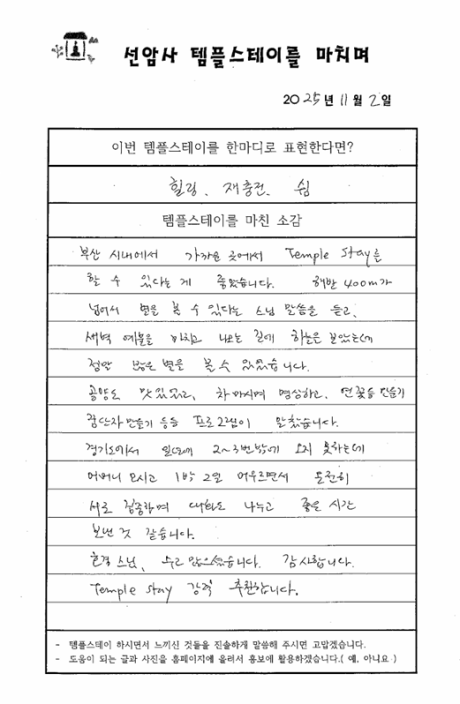 선암사 템플스테이를 마치며
2025년 11월 2일
이번 템플스테이를 한마디로 표현한다면?
힐링, 재충전, 쉼
템플스테이를 마친 소감
부산 시내에서 가까운 곳에서 Temple Stay를
할 수 있다는 게 좋았습니다. 해발 400m가
넘어서 별을 볼 수 있다는 스님 말씀을 듣고,
새벽 예불을 마치고 나오는 길에 하늘을 보았는데
정말 많은 별을 볼 수 있었습니다.
공양도 맛있었고, 차 마시며 명상하고, 연꽃등 만들기
만들기 등등 프로그램이 알찼습니다.
경기도에서 일년에 2~3번밖에 오지 못하는데
어머니 모시고 1박 2일 머무르면서 온전히
서로 집중하며 대화도 나누고 좋은 시간
보낸 것 같습니다.
스님, 수고 많으셨습니다. 감사합니다.
Temple Stay 강력 추천합니다.
- 템플스테이 하시면서 느끼신 것들을 진솔하게 말씀해 주시면 고맙겠습니다.
- 도움이 되는 글과 사진을 홈페이지에 올려서 홍보에 활용하겠습니다.( 예, 아니요 )